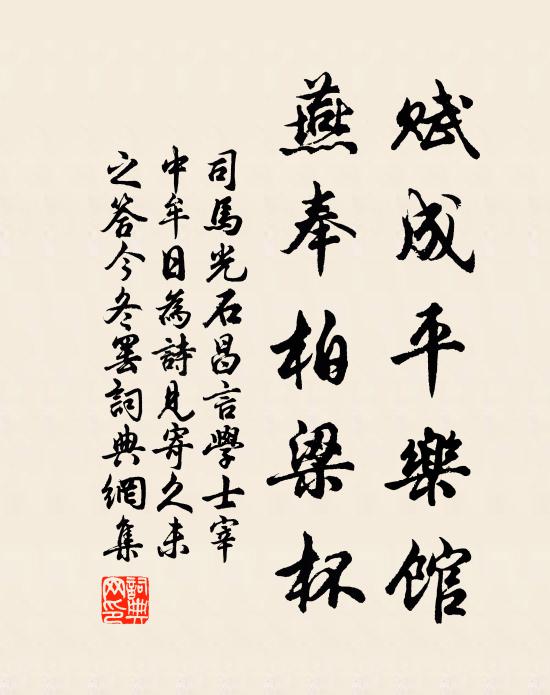 賦成平樂館
燕奉柏梁杯
司馬光石昌言學士宰
中牟日為詩見寄久未
之答今冬罢詞典網集
詞典
网印